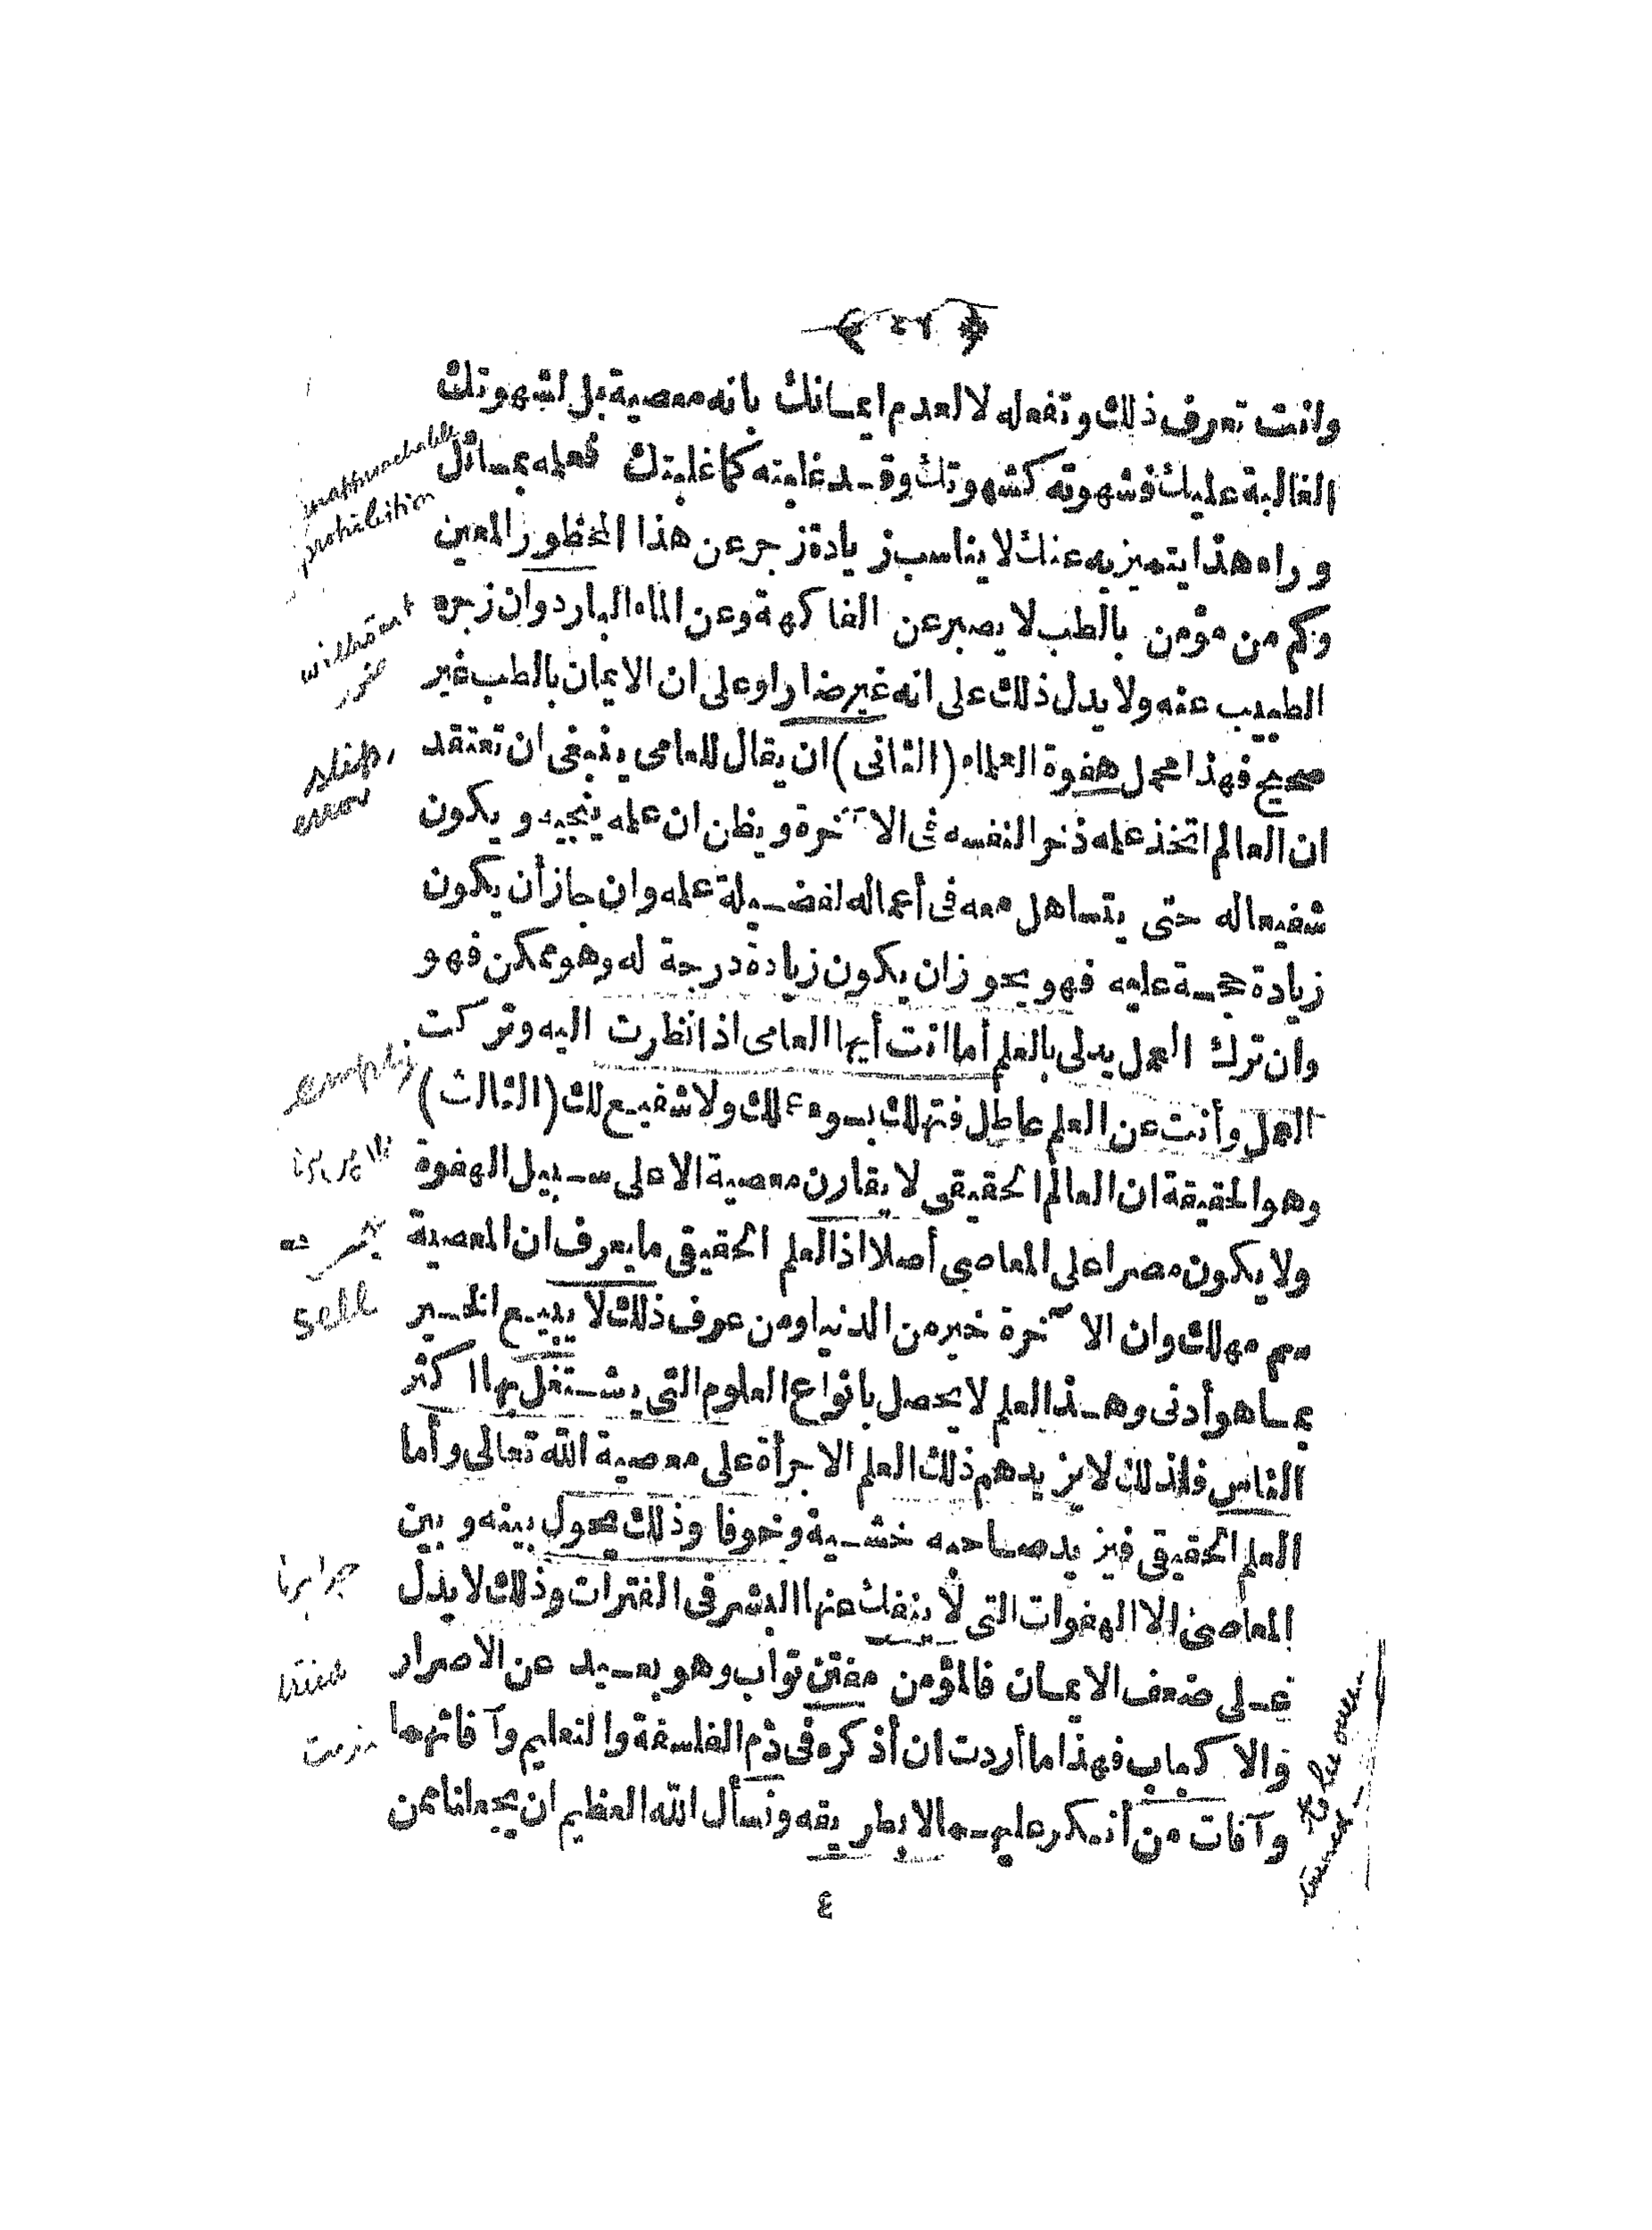 ﴿ ٤٩ ﴾
وانت تعرف ذلك وتفعله لا لعدم ايمانك بانه معصية بل لشهوتك
الغالبة عليك فشهوته كشهوتك وقد غلبته كما غلبتك فعلمه بمسائل
وراء هذا يتميز به عنك لا يناسب زيادة زجر عن هذا المحظور المعين
وكم من مؤمن بالطب لا يصبر عن الفاكهة وعن الماء البارد وان زجره
الطبيب عنه ولا يدل ذلك على انه غير ضار او على ان الايمان بالطب غير
صحيح فهذا محمل هفوة العلماء (الثانى) ان يقال للعامى ينبغى ان تعتقد
ان العالم اتخذ علمه ذخرا لنفسه فى الآخرة ويظن ان علمه ينجيه ويكون
شفيعا له حتى يتساهل معه فى أعماله لفضيلة علمه وان جاز أن يكون
زيادة حجة عليه فهو يجوز ان يكون زيادة درجة له وهو ممكن فهو
وان ترك العمل يدلى بالعلم أما انت أيها العامى اذا نظرت اليه وتركت
العمل وأنت عن العلم عاطل فتهلك بسوء عملك ولا شفيع لك (الثالث)
وهو الحقيقة ان العالم الحقيقى لا يقارن معصية الا على سبيل الهفوة
ولا يكون مصرا على المعاصى أصلا اذ العلم الحقيقى ما يعرف ان المعصية
سم مهلك وان الآخرة خير من الدنيا ومن عرف ذلك لا يبيع الخير
بما هو أدنى وهذا العلم لا يحصل بانواع العلوم التى يشتغل بها اكثر
الناس فلذلك لا يزيدهم ذلك العلم الا جرأة على معصية الله تعالى وأما
العلم الحقيقى فيزيد صاحبه خشية وخوفا وذلك يحول بينه وبين
المعاصى الا الهفوات التى لا ينفك عنها البشر فى الفترات وذلك لا يدل
على ضعف الايمان فالمؤمن مفتن تواب وهو بعيد عن الاصرار
والا كباب فهذا ما أردت ان أذكره فى ذم الفلسفة والتعليم وآفاتهما
وآفات من أنكر عليهما لا بطريقه ونسأل الله العظيم ان يجعلنا ممن
٤
prohibition
without
ضرر
slip,
error
empty
sell
tried